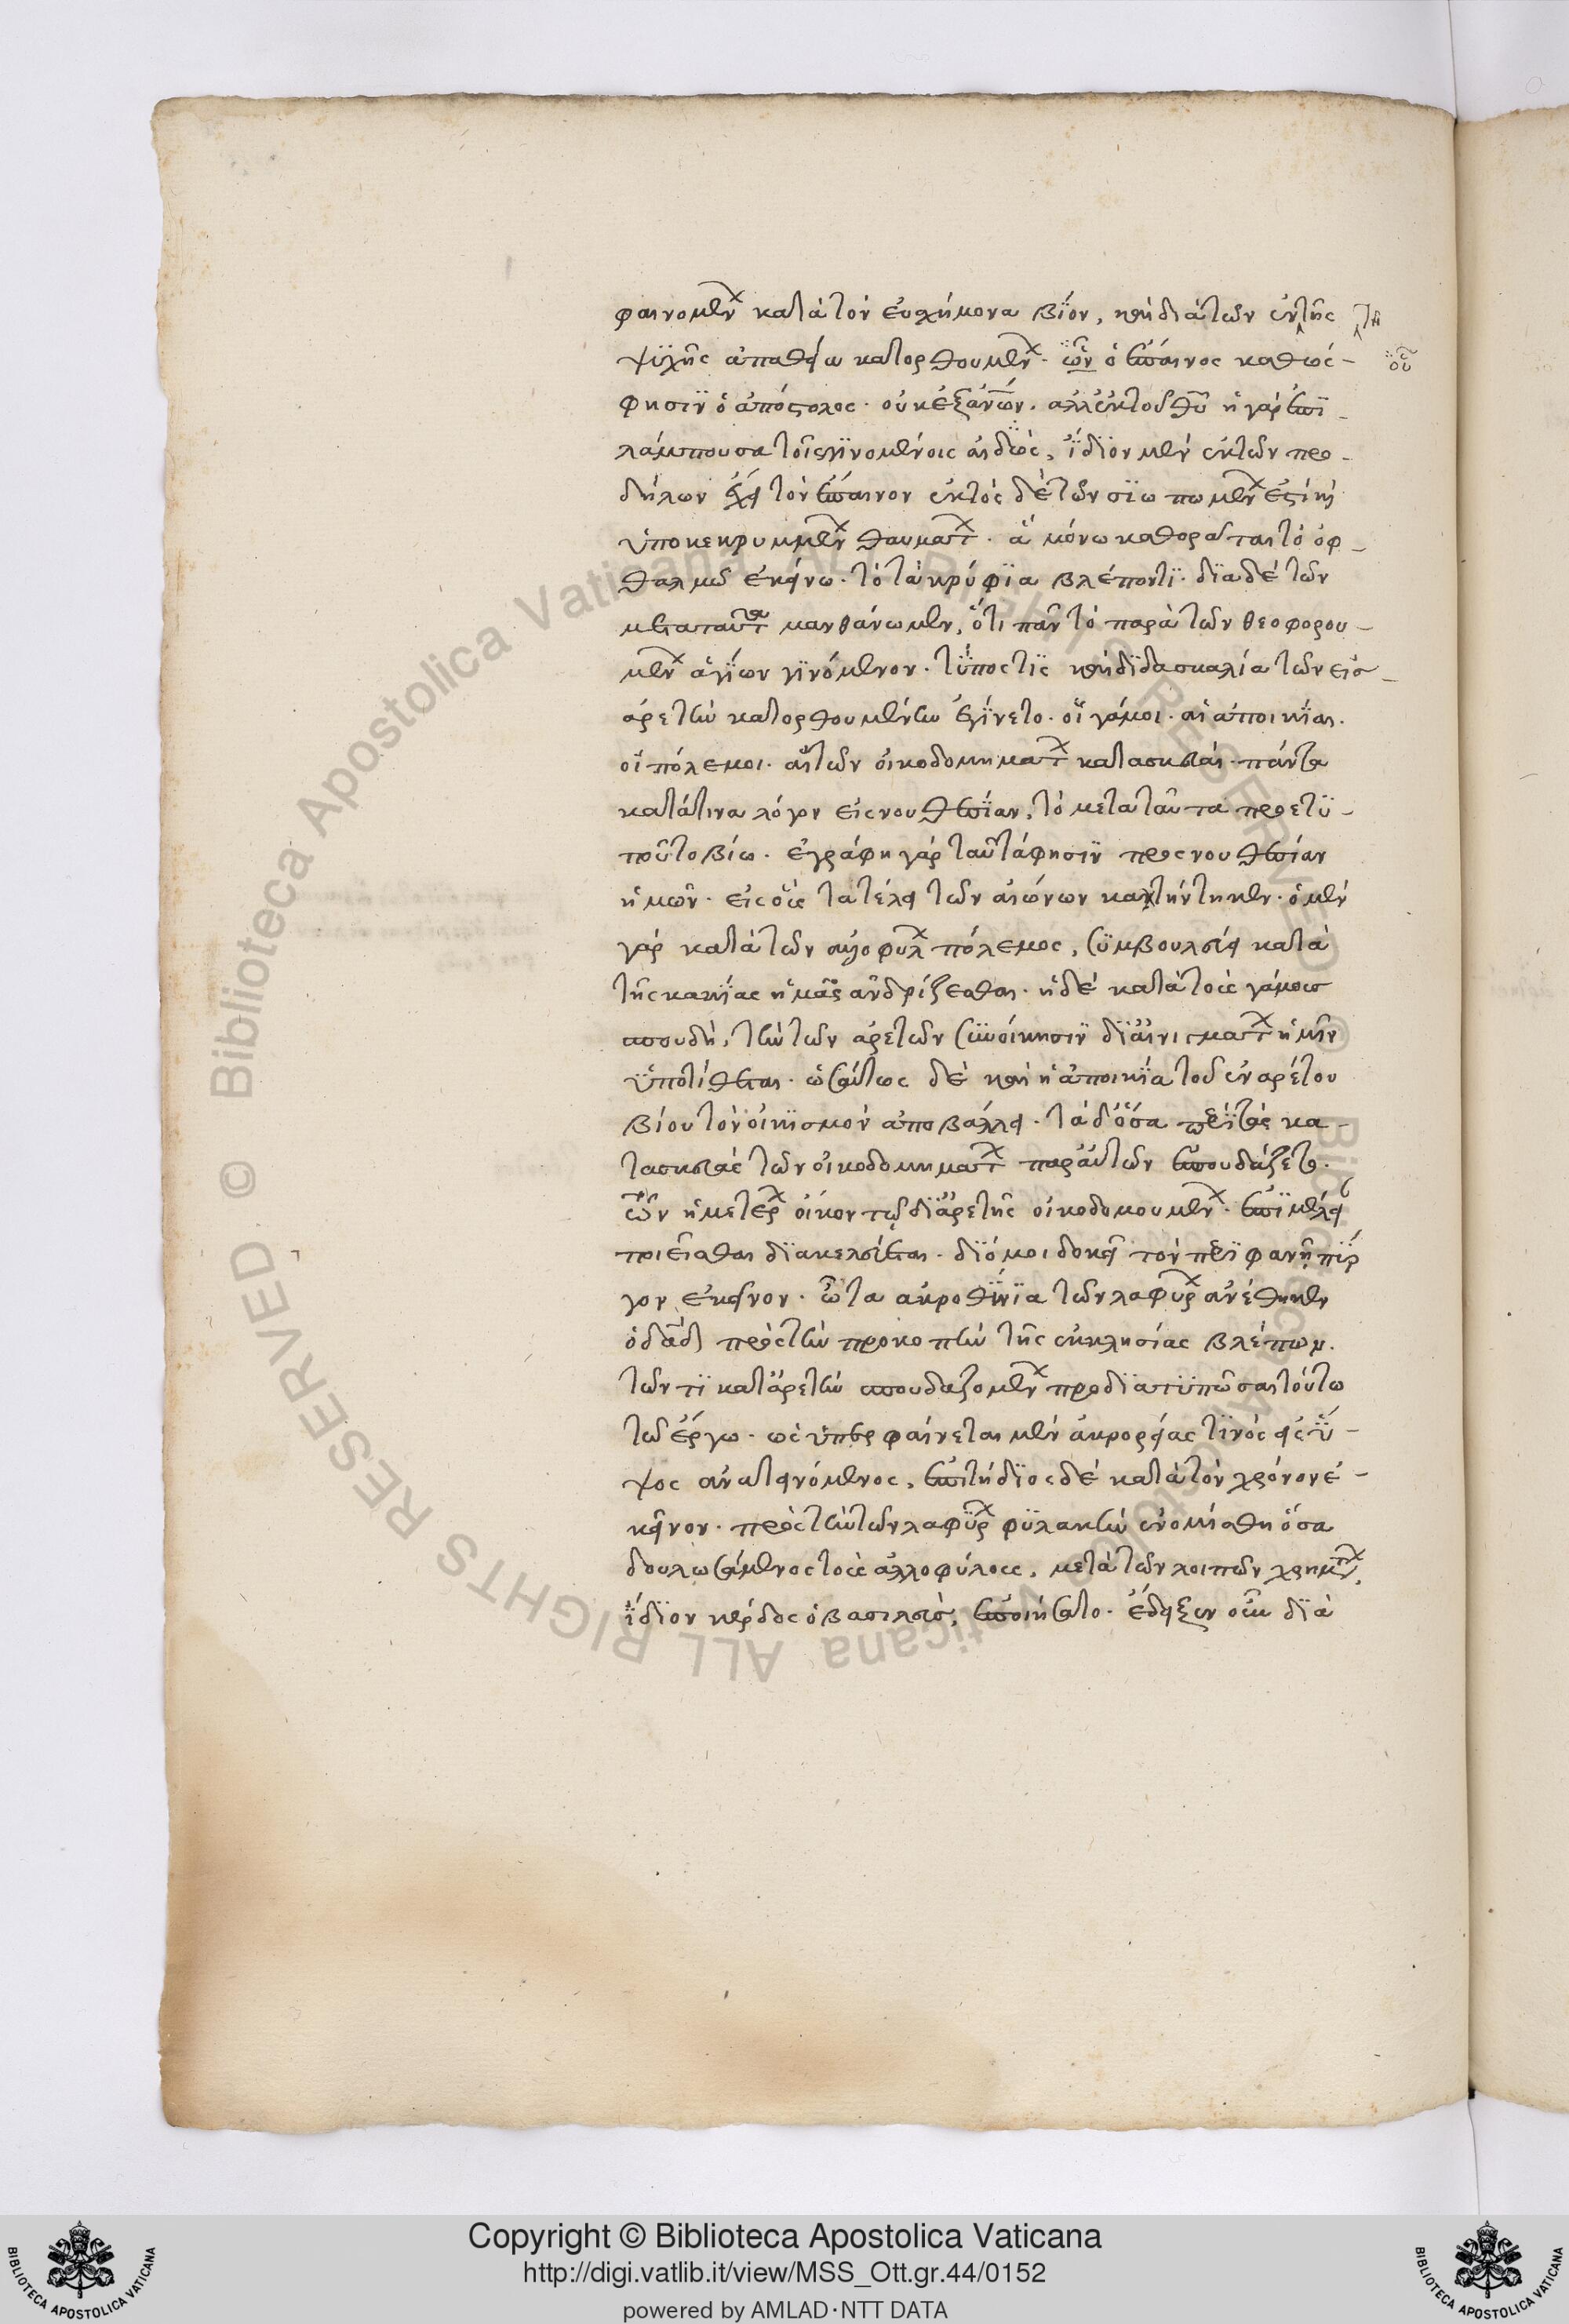 φαινομέν κατὰ τὸν εὐσχήμονα βίον, καὶ διὰ τῶν ἐν τῆς τῆ
ψυχῆς ἀπαθεία κατορθουμέν. ὧν ὁ ἔπαινος καθώς- οὗ
φησιν ὁ ἀπόστολος. οὐκ ἐξ ἀνων. ἀλλ' ἐκ τοῦ θυ ἡ γὰρ ἐπι-
λάμπουσα τοῖς γινομένοις αἰδὼς, ἴδιον μὲν ἐκ τῶν προ-
δήλων ἔχει τὸν ἔπαινον ἐκτὸς δὲ τῶν σιωπωμέν ἐστὶ καὶ
ὑποκεκρυμμέν θαυματ. ἃ μόνω καθορᾶται τὸ ὀφ-
θαλμῶ ἐκείνω. τὸ τὰ κρύφια βλέποντι. διὰ δὲ τῶν
μετὰ ταῦτα μανθάνωμεν, ὅτι πᾶν τὸ παρὰ τῶν θεοφορου-
μέν ἁγίων γινόμενον. τύπος τις καὶ διδασκαλία τῶν εἰσ-
ἀρετὴν κατορθουμένων ἐγίνετο. οἱ γάμοι. αἱ ἀποικίαι.
οἱ πόλεμοι. αἱ τῶν οἰκοδομηματ κατασκευαί. πάντα
κατά τινα λόγον εἰς νουθεσίαν, τὸ μετὰ ταῦτα προετυ-
ποῦτο βίω. ἐγράφη γὰρ ταῦτά φησιν προς νουθεσίαν
ἡμῶν. εἰς οὓς τὰ τέλει τῶν αἰώνων κατήντηκεν. ὁ μὲν
γὰρ κατὰ τῶν ἀλλοφυλ πόλεμος, συμβουλεύει κατὰ
τῆς κακίας ἡμᾶς ἀνδρίζεσθαι. ἡ δὲ κατὰ τοὺς γάμους
σπουδὴ, τὴν τῶν ἀρετῶν συνοίκησιν δι' αἰνιγματ ἡμῖν
ὑποτίθεται. ὡσαύτως δὲ καὶ ἡ ἀποικία τοῦ ἐναρέτου
βίου τὸν οἰκισμὸν ἀποβάλλει. τὰ δ' ὅσα περὶ τὰς κα-
τασκευὰς τῶν οἰκοδομηματ παρ' αὐτῶν ἐσπουδάζετο.
ὧν ἡμετέρ οἴκον τῶ δι' ἀρετῆς οἰκοδομουμέν. ἐπιμέλει
ποιεῖσθαι διακελεύεται. διό μοι δοκεῖ τὸν περιφανῆ πύρ
γον ἐκεῖνον. ὧ τὰ ἀκροθίνια τῶν λαφύρ ἀνέθηκεν
ὁ δαδ πρὸς τὴν προκοπὴν τῆς ἐκκλησίας βλέπων.
τῶν τι κατ' ἀρετὴν σπουδαζομέν προδιατυπῶσαι τούτω
τῶ ἔργω. ὡς ὑπερφαίνεται μὲν ἀκρορείας τινὸς εἰς ὕ-
ψος ἀνατεινόμενος, ἐπιτήδιος δὲ κατὰ τὸν χρόνον ἐ-
κεῖνον. πρὸς τὴν τῶν λαφύρ φυλακὴν ἐνομίσθη ὅσα
δουλωσάμενος τοὺς ἀλλοφύλους, μετὰ τῶν λοιπῶν χρημτ,
ἴδιον κέρδος ὁ βασιλεὺς, ἐποιήσατο. ἔδειξεν οὖν διὰ
Copyright © Biblioteca Apostolica Vaticana
http://digi.vatlib.it/view/MSS_Ott.gr.44/0152
powered by AMLAD·NTT DATA